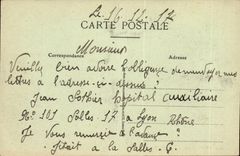 Le 16-11-17
CARTE POSTALE
Correspondance
Monsieur
Veuillez bien avoir l'obligence de m'envoyer mes
lettres à l'adresse ci-dessus :
Jean hôpital auxiliaire
N° 101 Salles 17 à Lyon Rhône
Je vous remercie à l'avance
était à la Salles 6